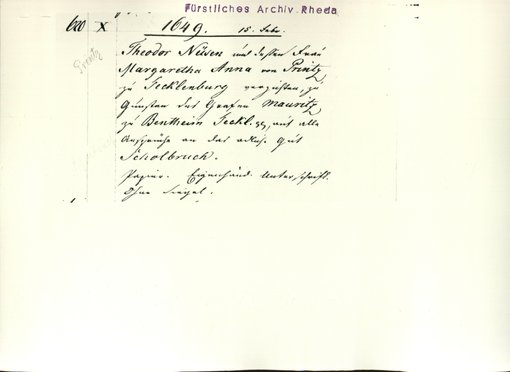 Fürstliches Archiv Rheda
600 X 1649. 15. Febr.
Printz
Theodor Nüsen und dessen Frau
Margaretha Anna von Printz,
zu Tecklenburg verzichten, zu
Gunsten des Grafen Mauritz
zu Bentheim Teckl. auf alle
Ansprüche an das adlich. Gut
Scholbruch.
Papier. Eigenhänd. Unterschrift.
Ohne Siegel.